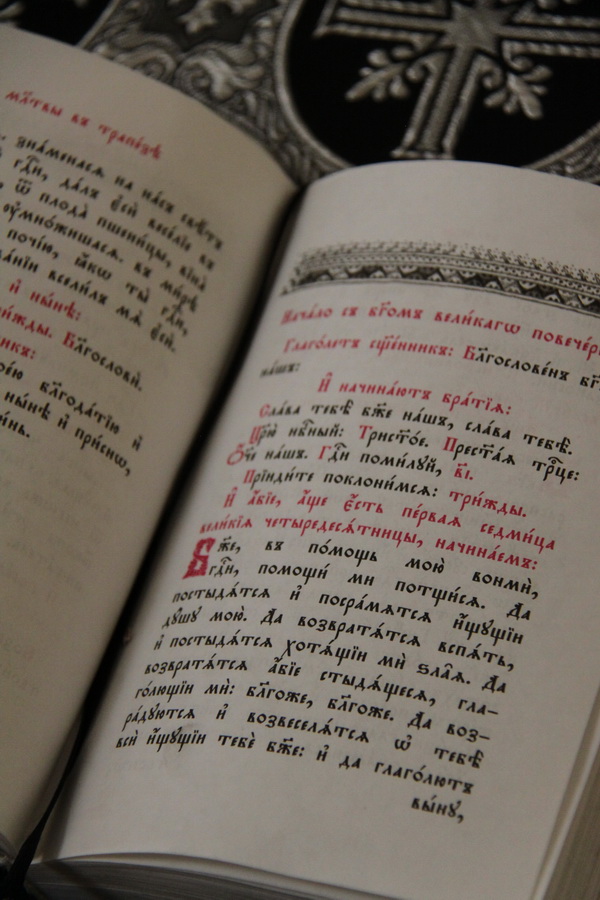 мл҃твы въ трапе́зѣ
зна́менасѧ на на́съ свѣ́тъ
гдⷭ҇и, да́лъ є҆сѝ весе́лїе въ
ѿ плода̀ пшени́цы, вїна̀
ᲂу҆мно́жишасѧ. въ ми́рѣ
почі́ю, ꙗ҆́кѡ ты̀ гдⷭ҇и,
всели́лъ мѧ̀ є҆сѝ.
и҆ ны́нѣ:
Бл҃гословѝ.
бл҃года́тїю и҆
ны́нѣ и҆ при́снѡ,
Нача́ло съ бг҃омъ вели́кагѡ
Глаго́летъ сщ҃е́нникъ: Бл҃гослове́нъ
на́шъ:
И҆ начина́ютъ бра́тїѧ:
Сла́ва тебѣ̀ бж҃е на́шъ, сла́ва тебѣ̀.
Цр҃ю̀ нбⷭ҇ный: Трист҃о́е. Прест҃а́ѧ трⷪ҇це:
Ѻ҆́ч҃е на́шъ. Гдⷭ҇и поми́лꙋй, в҃і.
Прїиди́те поклони́мсѧ: три́жды.
И҆ а҆́бїе, а҆́ще є҆́сть пе́рваѧ седми́ца
вели́кїѧ четыредесѧ́тницы, начина́емъ:
Бж҃е, въ по́мощь мою̀ вонмѝ,
гдⷭ҇и, помощи́ ми потщи́сѧ. Да
постыдѧ́тсѧ и҆ посра́мѧтсѧ и҆́щꙋщїи
дꙋ́шꙋ мою̀. Да возвратѧ́тсѧ вспѧ́ть,
и҆ постыдѧ́тсѧ хотѧ́щїи мѝ ѕла̑ѧ. Да
возвратѧ́тсѧ а҆́бїе стыдѧ́щесѧ, гла-
го́лющїи мѝ: бл҃го́же, бл҃го́же. Да воз-
ра́дꙋютсѧ и҆ возвеселѧ́тсѧ ѡ҆ тебѣ̀
всѝ и҆́щꙋщїи тебѐ бж҃е: и҆ да глаго́лютъ
вы́нꙋ,